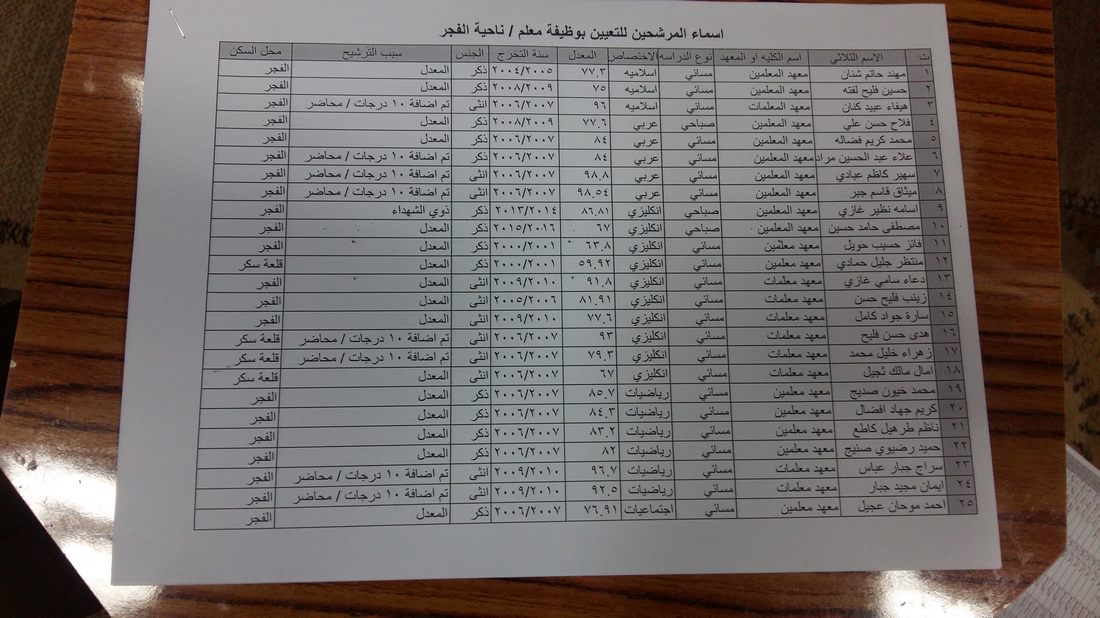 اسماء المرشحين للتعيين بوظيفة معلم / ناحية الفجر
ت الاسم الثلاثي اسم الكليه او المعهد نوع الدراسه الاختصاص المعدل سنة التخرج الجنس سبب الترشيح محل السكن
١ مهند حاتم شنان معهد المعلمين مسائي اسلاميه ٧٧.٣ ٢٠٠٤/٢٠٠٥ ذكر المعدل الفجر
٢ حسين فليح لفته معهد المعلمين مسائي اسلاميه ٧٥ ٢٠٠٨/٢٠٠٩ ذكر المعدل الفجر
٣ هيفاء عبيد كنان معهد المعلمات مسائي اسلاميه ٩٦ ٢٠٠٦/٢٠٠٧ انثى تم اضافة ١٠ درجات / محاضر الفجر
٤ فلاح حسن علي معهد المعلمين صباحي عربي ٧٧.٦ ٢٠٠٨/٢٠٠٩ ذكر المعدل الفجر
٥ محمد كريم فضاله معهد المعلمين مسائي عربي ٨٤ ٢٠٠٦/٢٠٠٧ ذكر المعدل الفجر
٦ علاء عبد الحسين مراد معهد المعلمين مسائي عربي ٨٤ ٢٠٠٦/٢٠٠٧ ذكر تم اضافة ١٠ درجات / محاضر الفجر
٧ سهير كاظم عبادي معهد المعلمين مسائي عربي ٩٨.٨ ٢٠٠٦/٢٠٠٧ ذكر تم اضافة ١٠ درجات / محاضر الفجر
٨ ميثاق قاسم جبر معهد المعلمين مسائي عربي ٩٨.٥٤ ٢٠٠٦/٢٠٠٧ ذكر تم اضافة ١٠ درجات / محاضر الفجر
٩ اسامه نظير غازي معهد المعلمين صباحي انكليزي ٨٦.٨١ ٢٠١٣/٢٠١٤ ذكر ذوي الشهداء الفجر
١٠ مصطفى حامد حسين معهد المعلمين صباحي انكليزي ٦٧ ٢٠١٥/٢٠١٦ ذكر المعدل الفجر
١١ فائز حسيب حويل معهد معلمين مسائي انكليزي ٦٣.٨ ٢٠٠٠/٢٠٠١ ذكر المعدل الفجر
١٢ منتظر جليل حمادي معهد معلمين مسائي انكليزي ٥٩.٩٢ ٢٠٠٠/٢٠٠١ ذكر المعدل قلعة سكر
١٣ دعاء سامي غازي معهد معلمات مسائي انكليزي ٩١.٨ ٢٠٠٩/٢٠١٠ انثى المعدل الفجر
١٤ زينب فليح حسن معهد معلمات مسائي انكليزي ٨١.٩١ ٢٠٠٥/٢٠٠٦ انثى المعدل الفجر
١٥ سارة جواد كامل معهد معلمات مسائي انكليزي ٧٧.٦ ٢٠٠٩/٢٠١٠ انثى المعدل الفجر
١٦ هدى حسن فليح معهد معلمات مسائي انكليزي ٩٣ ٢٠٠٦/٢٠٠٧ انثى تم اضافة ١٠ درجات / محاضر قلعة سكر
١٧ زهراء خليل محمد معهد معلمات مسائي انكليزي ٧٩.٣ ٢٠٠٦/٢٠٠٧ انثى تم اضافة ١٠ درجات / محاضر قلعة سكر
١٨ امال مالك ثجيل معهد معلمات مسائي انكليزي ٦٧ ٢٠٠٦/٢٠٠٧ انثى المعدل قلعة سكر
١٩ محمد خيون صديج معهد معلمين مسائي رياضيات ٨٥.٧ ٢٠٠٦/٢٠٠٧ ذكر المعدل الفجر
٢٠ كريم جهاد افضال معهد معلمين مسائي رياضيات ٨٤.٣ ٢٠٠٦/٢٠٠٧ ذكر المعدل الفجر
٢١ ناظم طرهيل كاطع معهد معلمين مسائي رياضيات ٨٣.٢ ٢٠٠٦/٢٠٠٧ ذكر المعدل الفجر
٢٢ حميد رضيوي صنيج معهد معلمين مسائي رياضيات ٨٢ ٢٠٠٦/٢٠٠٧ ذكر المعدل الفجر
٢٣ سراج جبار عباس معهد معلمات مسائي رياضيات ٩٦.٧ ٢٠٠٩/٢٠١٠ انثى تم اضافة ١٠ درجات / محاضر الفجر
٢٤ ايمان مجيد جبار معهد معلمات مسائي رياضيات ٩٢.٥ ٢٠٠٩/٢٠١٠ انثى تم اضافة ١٠ درجات / محاضر الفجر
٢٥ احمد موحان عجيل معهد معلمين مسائي اجتماعيات ٧٦.٩١ ٢٠٠٦/٢٠٠٧ ذكر المعدل الفجر